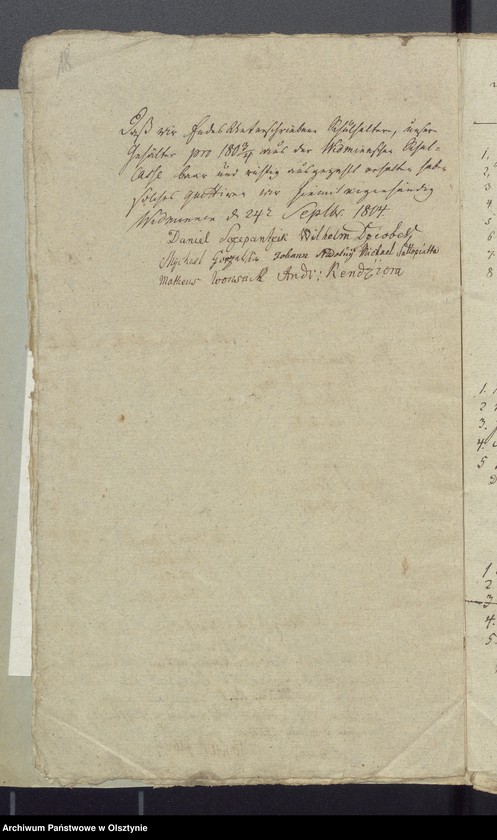 18
Daß wir Endes Unterschriebene Schulhalter, unser
Gehälter pro 180¾ aus der Widminnschen Schul-
Casse baar und richtig ausgezahlt erhalten habe
solches quittiren wir hiemit eigenhändig
Widminnen d 24t Septbr. 1804.
Daniel Szepantzik Wilhelm Dziobek
Michael Gorzelʃki Johann Michael Sallopiatta
Matheus Wonsack Andr: Kendziora
1,
2,
3.
4.
5
6
7.
8
1.
2
3.
4.
5
1
2
3
4.
5.
Archiwum Państwowe w Olsztynie